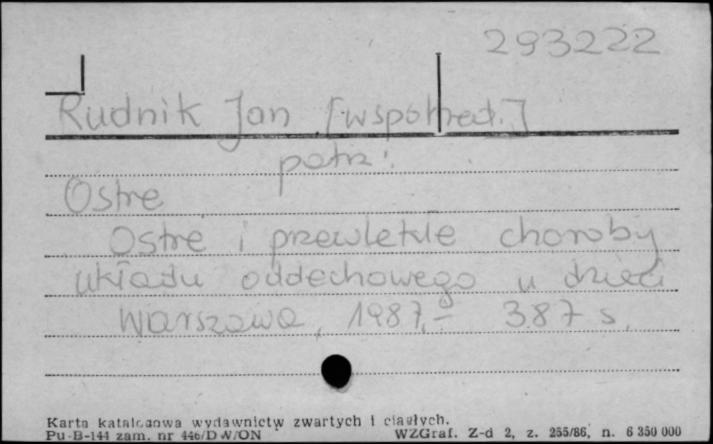 293222
Rudnik Jan [współred.]
patrz:
Ostre
Ostre i przewlekłe choroby
układu oddechowego u dzieci
Warszawa, 1987.- 387 s.
Karta katalogowa wydawnictw zwartych i ciągłych.
Pu-B-144 zam. nr 446/D W/ON WZGraf. Z-d 2, z. 255/86, n. 6 350 000